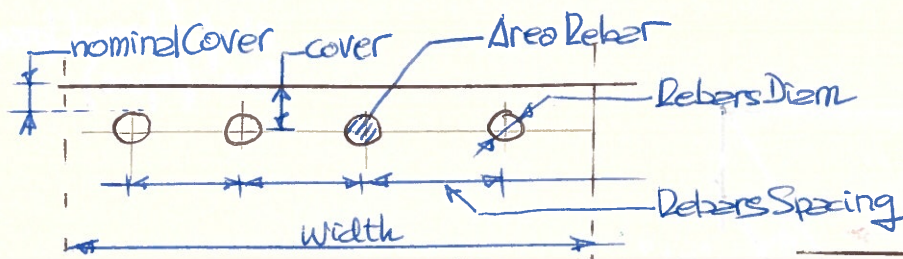 nominalCover
cover
AreaRebar
RebarsDiam
RebarsSpacing
Width